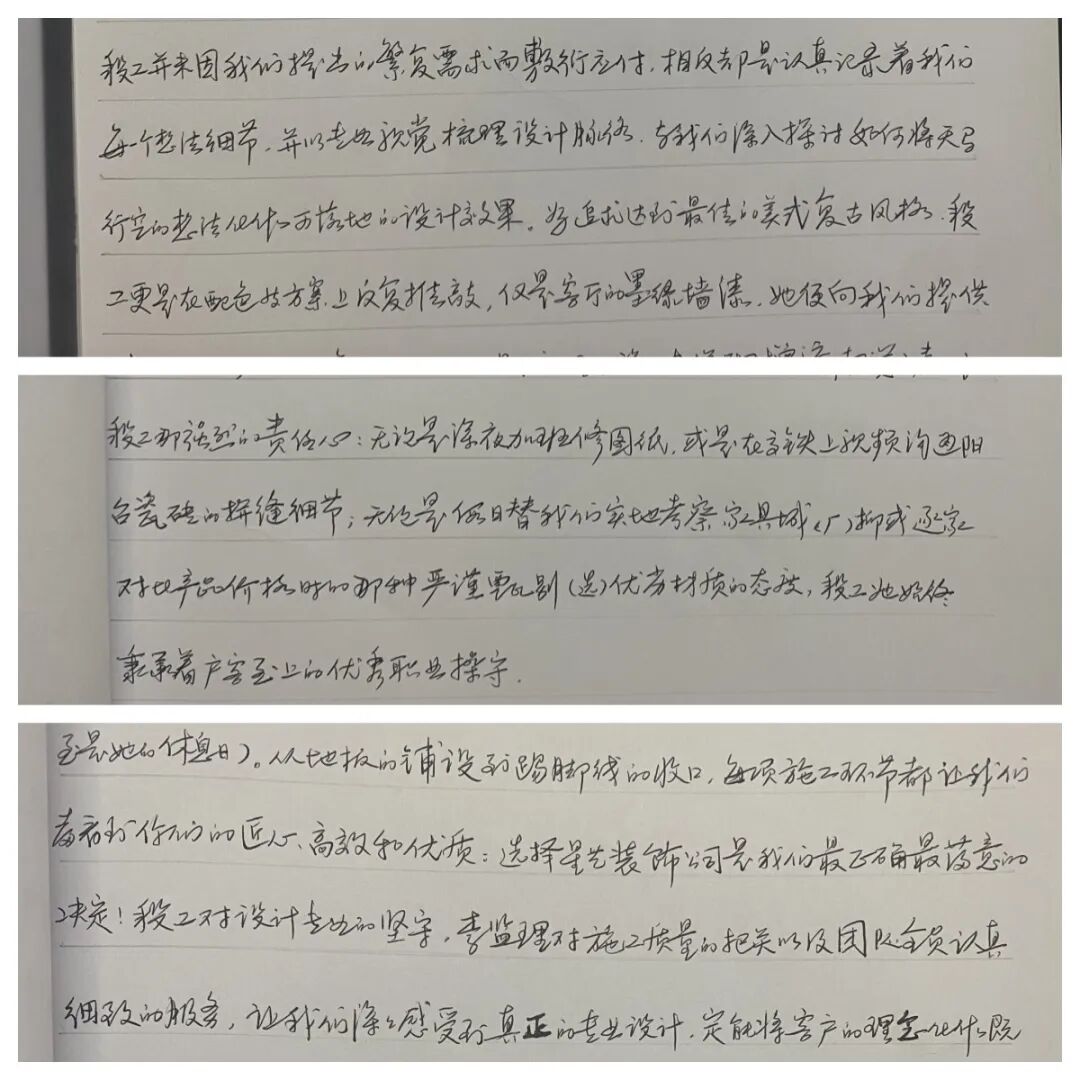 段工并未因我们提出的繁复需求而敷衍应付，相反却是认真记录着我们
每一个想法细节，并以专业视觉梳理设计脉络，与我们深入探讨如何将天马
行空的想法化作可落地的设计效果。为追求达到最佳的美式复古风格，段
工更是在配色与方案上反复推敲，仅是客厅的墨绿墙漆，她便向我们提供
段工那强烈的责任心：无论是深夜加班修图纸，或是在高铁上视频沟通阳
台瓷砖的拼缝细节；无论是假日替我们实地考察家具城（厂）抑或逐家
对比产品价格时的那种严谨甄别（选）优劣材质的态度，段工她始终
秉承着户客至上的优秀职业操守．
至是她的休息日）。从地板的铺设到踢脚线的收口，每项施工环节都让我们
看到你们的匠心、高效和优质：选择星艺装饰公司是我们最正确最满意的
决定！段工对设计专业的坚守，李监理对施工质量的把关以及团队全员认真
细致的服务，让我们深深感受到真正的专业设计，定能将客户的理念化作既